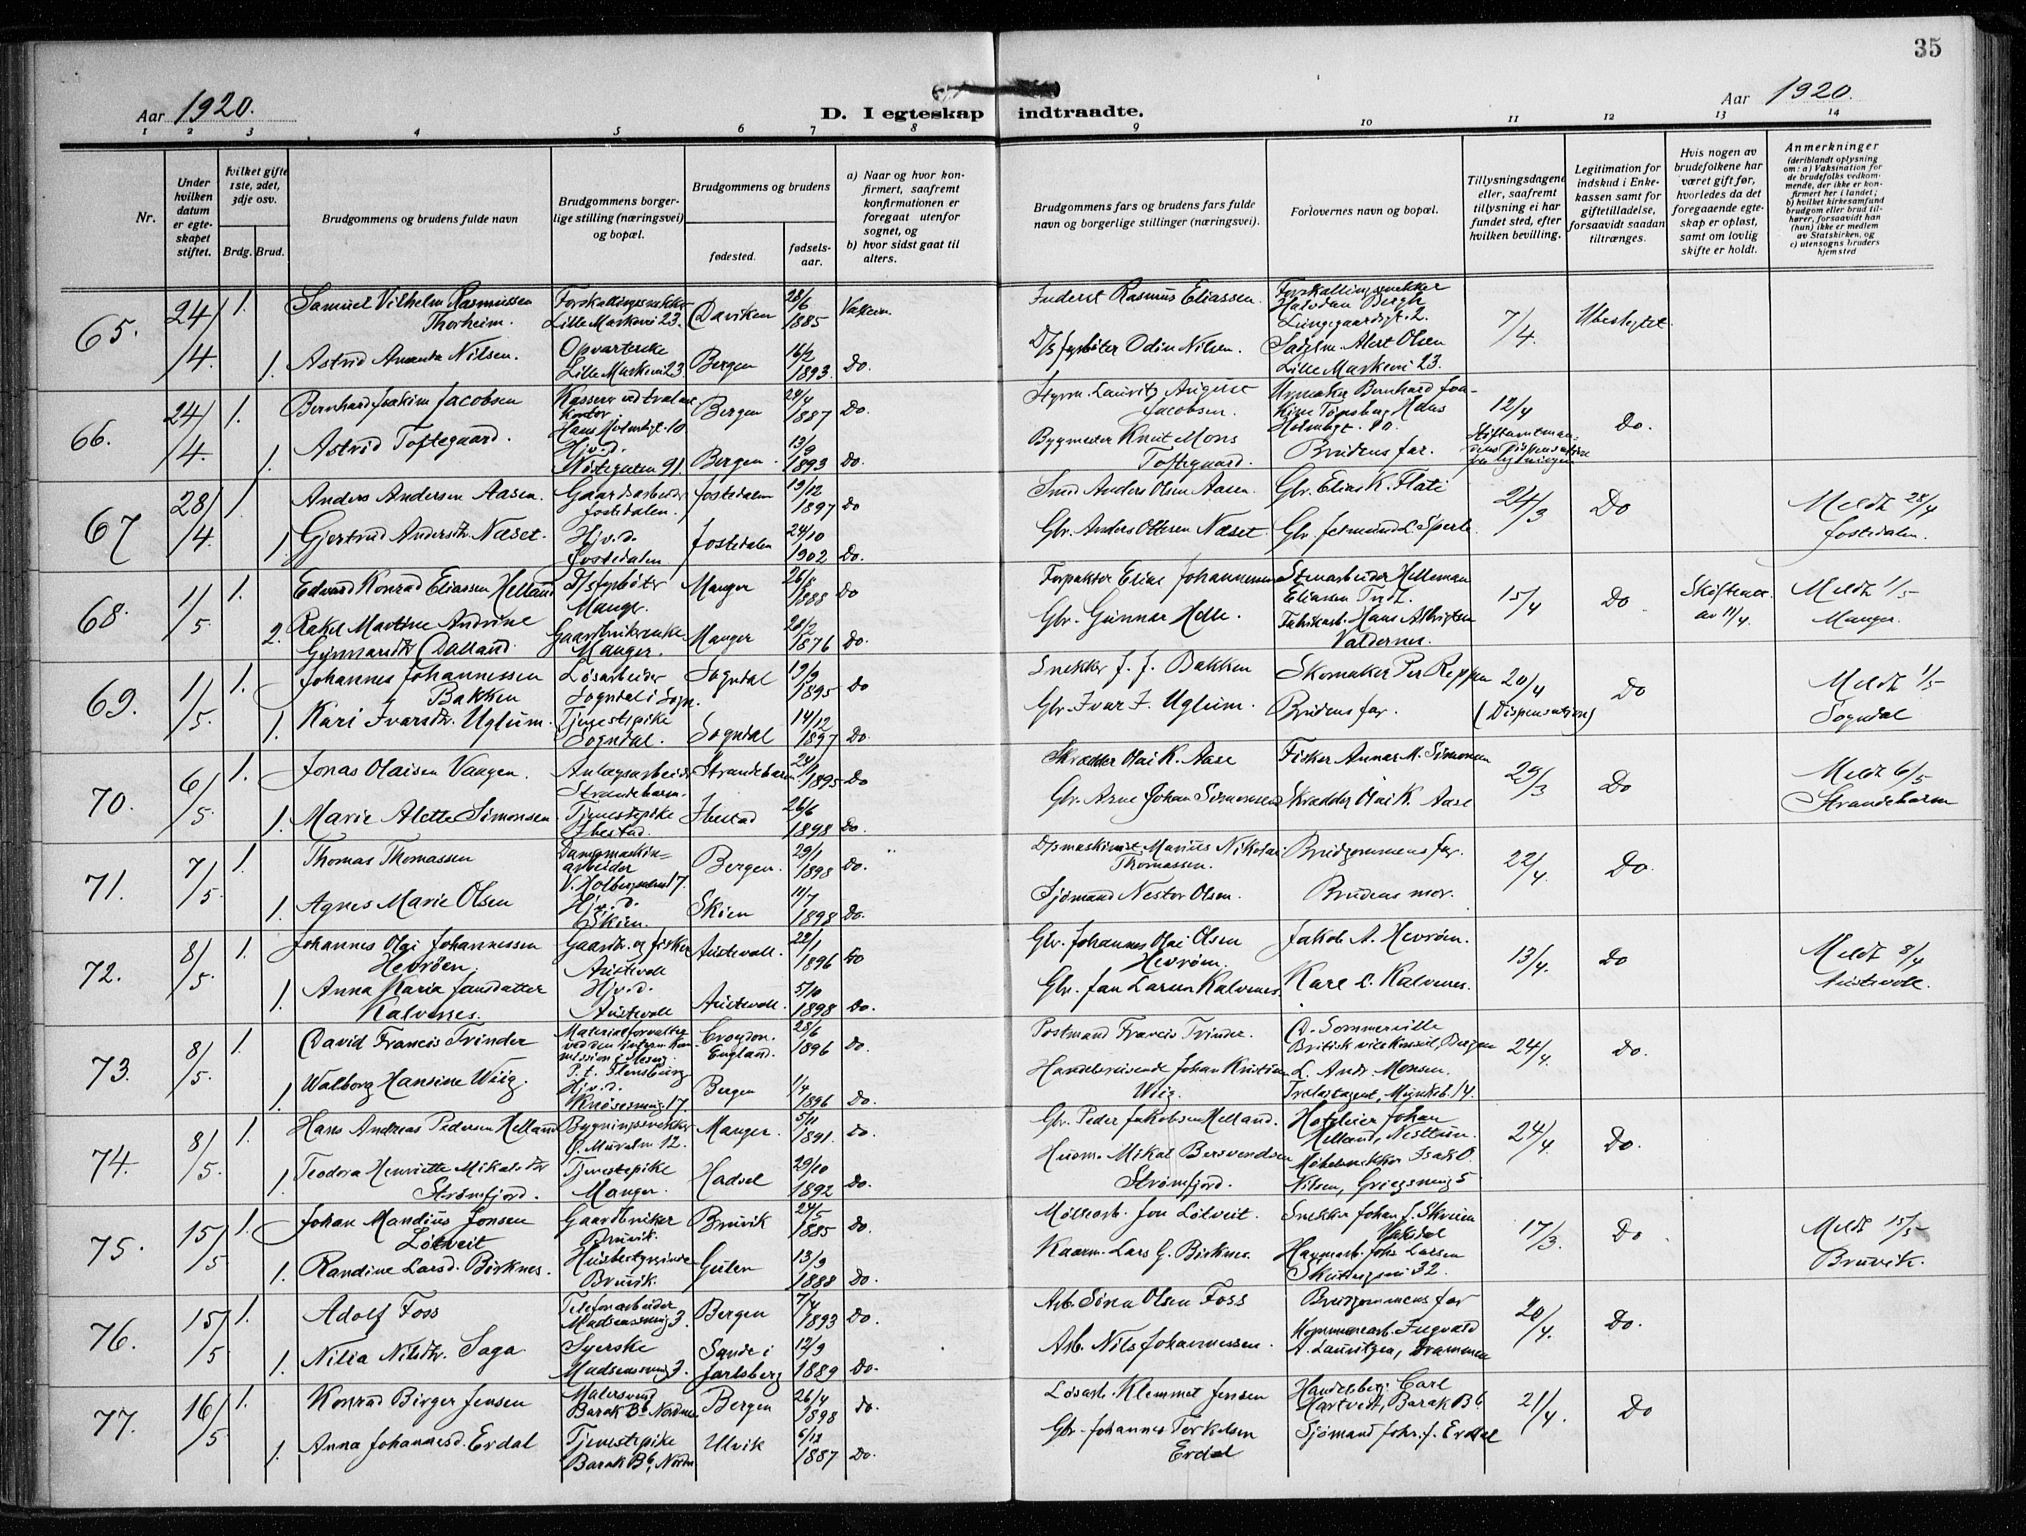 35
Aar 1920.
D. I egteskap indtraadte.
Aar 1920.
1 2 3 4 5 6 7 8 9 10 11 12 13 14
Nr.
Under hvilken datum er egteskapet stiftet.
hvilket gifte 1ste, 2det, 3dje osv.
Brdg. Brud.
Brudgommens og brudens fulde navn
Brudgommens borgerlige stilling (næringsvei) og bopæl.
Brudgommens og brudens
fødested.
fødselsaar.
a) Naar og hvor konfirmert, saafremt konfirmationen er foregaat utenfor sognet, og
b) hvor sidst gaat til alters.
Brudgommens fars og brudens fars fulde navn og borgerlige stillinger (næringsvei).
Forlovernes navn og bopæl.
Tillysningsdagene eller, saafremt tillysning ei har fundet sted, efter hvilken bevilling.
Legitimation for indskud i Enkekassen samt for giftetilladelse, forsaavidt saadan tiltrænges.
Hvis nogen av brudefolkene har været gift før, hvorledes da det foregaaende egteskap er opløst, samt om lovlig skifte er holdt.
Anmerkninger
(deriblandt oplysning om: a) Vaksination for de brudefolks vedkommende, der ikke er konfirmert her i landet; b) hvilket kirkesamfund brudgom eller brud tilhører, forsaavidt han (hun) ikke er medlem av Statskirken, og c) utensogns bruders hjemsted
65. 24/4. 1. Samuel Vilhelm Rasmussen Thorheim. Lille Markevei 23. Daviken 28/6 1885
Inderst Rasmus Eliassen. Halvdan Bergh 7/4 Ubeslegtet.
1. Astrid Amanda Nilsen. Opvarterske Lille Markevei 23. Bergen 16/2 1893. Do.
D/s fyrbøter Odin Nilsen. Alert Olsen Lille Markevei 23.
66. 24/4. 1. Bernhard Joakim Jacobsen Bergen 1887 Do.
Styrm. Lauritz August Jacobsen. Urmaker Bernhard 12/4 Do.
1. Astrid Toftegaard. Hj.v.d. Nøstegaten 91. Bergen. 13/9 1893 Do.
Bygmester Knut Mons Toftegaard. Brudens far.
67 28/4. 1. Anders Andersen Aasen. Gaardsarbeider Jostedalen. Jostedalen 13/12 1897 Do
Smed Anders Olsen Aasen. Gbr. Elias K. Flati 24/3 Do Meldt 28/4 Jostedalen.
1. Gjertrud Andersdtr. Næset. Hj.v.d. Jostedalen Jostedalen 24/10 1902 Do.
Gbr. Anders Ottesen Næset. Gbr. Jetmund L. Sperle
68. 1/5. 1. Edvard Konrad Eliassen Helland D/sfyrbøter Manger. Manger 26/8 1888 Do
Forpakter Elias Johannessen Stenarbeider Helleman Eliassen Tvdt. 15/4 Do Meldt 1/5 Manger.
2. Rakel Marthe Andrine Gunnarsdtr. Dalland. Gaardbrukerenke Manger. Manger. 1876 Do.
Gbr. Gunnar Helle. Hans Albrigtsen Valdernes.
69. 1/5. 1. Johannes Johannessen Bakken Løsarbeider Sogndal i Sogn. Sogndal 19/9 1895 Do
Snekker J. J. Bakken Skomaker Per Reppen 20/4 (Dispensation) Do Meldt 1/5 Sogndal
1. Kari Ivarsdtr. Uglum. Tjenestepike Sogndal. Sogndal 14/12 1897 Do.
Gbr. Ivar J. Uglum. Brudens far.
70. 6/5. 1. Jonas Olaisen Vangen. Anlægsarbeider Strandebarm. Strandebarm 1895 Do
Skrædder Olai K. Aase Fisker Annar M. Simonsen 29/3 Do Meldt 6/5 Strandebarm
1. Marie Alette Simonsen Tjenestepike Ibestad. Ibestad 26/6 1898 Do.
Gbr. Arne Johan Simonsen Skrædder Olai K. Aase
71. 7/5. 1. Thomas Thomassen Dampmaskinarbeider Bergen. 29/1 1898 Do.
D/smaskinist Marius Nikolai Thomassen. Brudgommens far. 22/4. Do.
1. Agnes Marie Olsen Hj.v.d. Skien. Skien 11/7 1898 Do.
Sjømand Nestor Olsen. Brudens mor.
72. 8/5. 1. Johannes Olai Johannessen Hevrøen. Gaardbr. og fisker Austevoll Austevoll. 22/1 1896 Do
Gbr. Johannes Olai Olsen Hevrøen. Jakob A. Hevrøen. 13/4. Do Meldt 8/4 Austevoll.
1. Anna Maria Jansdatter Kalvenes. Hj.v.d. Austevoll Austevoll. 5/10 1898 Do.
Gbr. Jan Larsen Kalvenes. Karl L. Kalvenes.
73. 8/5. 1. David Francis Trinder Materialforvalter P.t. Flensburg Croydon. England. 28/6 1896 Do.
Postmand Francis Trinder. D. Sommerville Britisk vicekonsul, Bergen 24/4. Do.
1. Walborg Hansine Wiig. Hj.v.d. Knøsesmug 17. Bergen 1/4 1896 Do.
Handelsreisende Johan Kristian Wiig. L. Andr. Monsen. Trælastagent, 14.
74. 8/5. 1. Hans Andreas Pedersen Helland Bygningssnekker Ø. Muralm. 12. Manger. 5/11 1891. Do.
Gbr. Peder Jakobsen Helland. Johan Helland, Nesttun. 24/4. Do.
1. Teodora Henriette Mikalsdtr. Strømfjord. Tjenestepike Manger. Hadsel 29/10 1892 Do.
Husm. Mikal Bersvendsen Strømfjord. Møbelsnekker Isak O. Nilsen, Griegsmug 5
75. 15/5 1. Johan Mandius Jonsen Løtveit Gaardbruker Bruvik. Bruvik 24/5 1885 Do.
Jon Løtveit. Snekker Johan J. 17/3. Do Meldt 15/5 Bruvik.
1. Randine Larsd. Birknes. Husbestyrerinde Bruvik. Gulen 13/3 1888 Do.
Kaarm. Lars G. Birknes. Havnearb. Johs. Larsen 32.
76. 15/5 1. Adolf Foss Telefonarbeider Madsensmug 3. Bergen 7/4 1893 Do.
Arb. Søren Olsen Foss Brudgommens far 20/4. Do.
1. Nilia Nilsdtr. Saga. Syerske Madsensmug 3. Sande i Jarlsberg 12/9 1889 Do.
Arb. Nils Johannessen. Kommunearb. Ingvald A. Lauritzen, Drammen
77. 16/5 1. Konrad Birger Jensen Malersvend Barak B6 Nordnes Bergen 26/4 1898 Do.
Løsarb. Klemmet Jensen Carl Hartvedt, Barak B6. 21/4. Do
1. Anna Johannesd. Erdal Tjenestepike Barak B6, Nordn. Ulvik 6/12 1887 Do.
Gbr. Johannes Torkelsen Erdal Sjømand Johs. J. Erdal